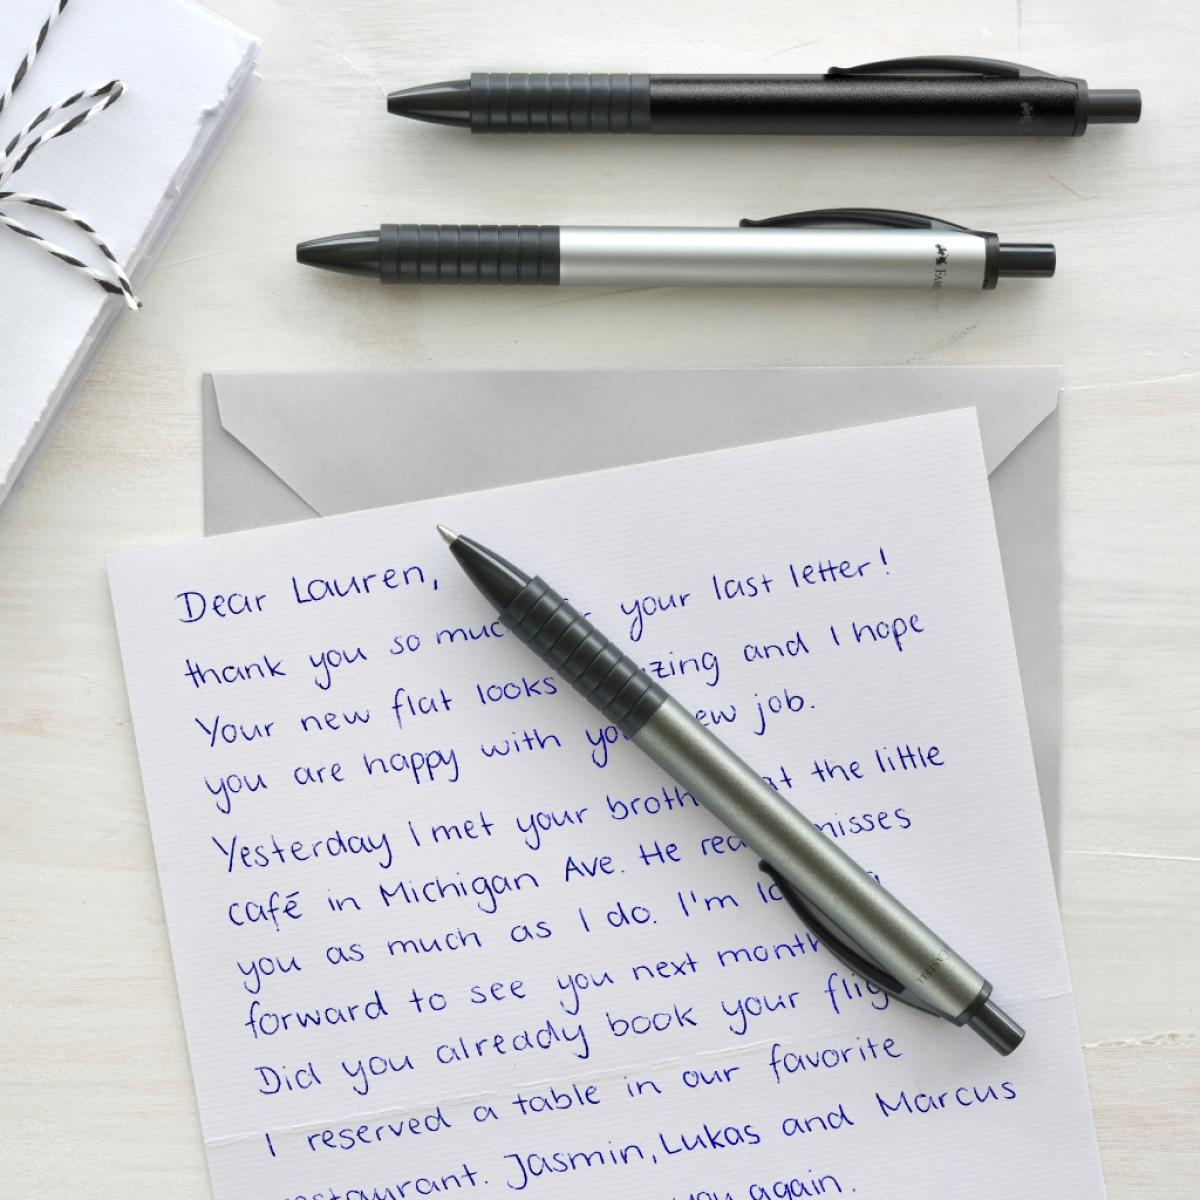 FABER
CASTELL
Dear Lauren,
thank you so your last letter!
Your new flat looks and I hope
you are happy with job.
Yesterday I met your at the little
café in Michigan Ave. He misses
you as much as I do. I'm
forward to see you next month
Did you already book your
I reserved a table in our favorite
restaurant. Jasmin, Lukas and Marcus
you again.